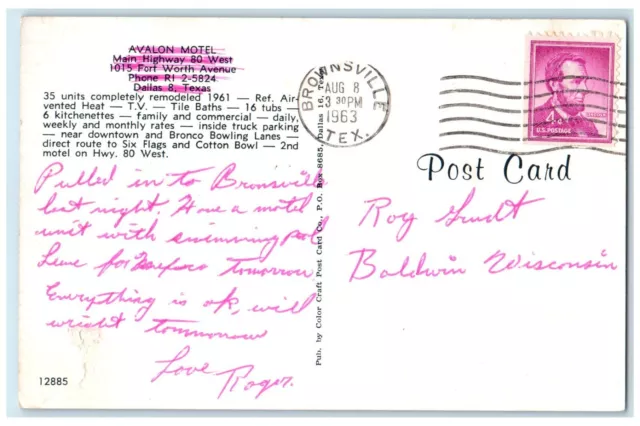 AVALON MOTEL
Main Highway 80 West
1015 Fort Worth Avenue
Phone RI 2-5824
Dallas 8, Texas
35 units completely remodeled 1961 — Ref. Air-
vented Heat — T.V. — Tile Baths — 16 tubs —
6 kitchenettes — family and commercial — daily,
weekly and monthly rates — inside truck parking
— near downtown and Bronco Bowling Lanes —
direct route to Six Flags and Cotton Bowl — 2nd
motel on Hwy. 80 West.
Pulled in to Bronsville
last night. Have a motel
unit with swimming pool
Leave for Mexico tomorrow
Everything is ok, will
wright tommorow
Love
Roger.
12885
Pub. by Color Craft Post Card Co., P.O. Box 8685, Dallas 16, Texas
BROWNSVILLE
AUG 8
3 30PM
1963
TEX.
4
U.S. POSTAGE
Post Card
Roy
Baldwin Wisconsin